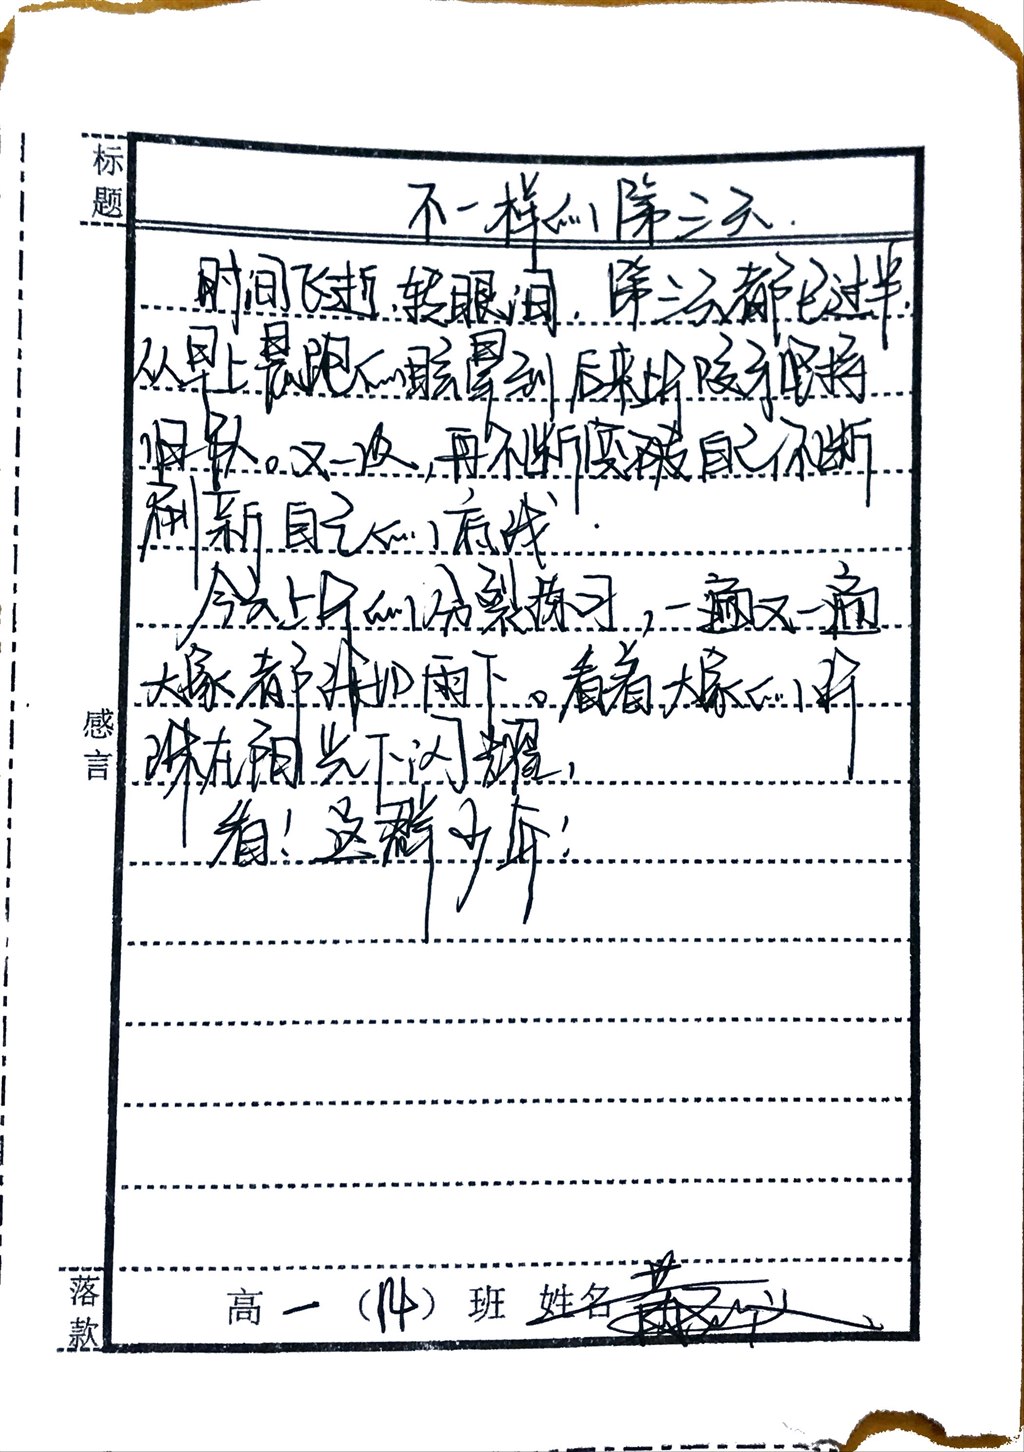 标题
不一样的第三天.
时间飞逝,转眼间,第三天都已过半,
从早上晨跑的眩晕到后来的咬牙坚持
归队。又一次,再不断突破自己不断
刷新自己的
今天上午的分裂练习,一遍又一遍
大家都挥汗雨下。看着大家的汗
珠在阳光下闪耀,
看!这群少年!
感言
落款
高一(14)班 姓名